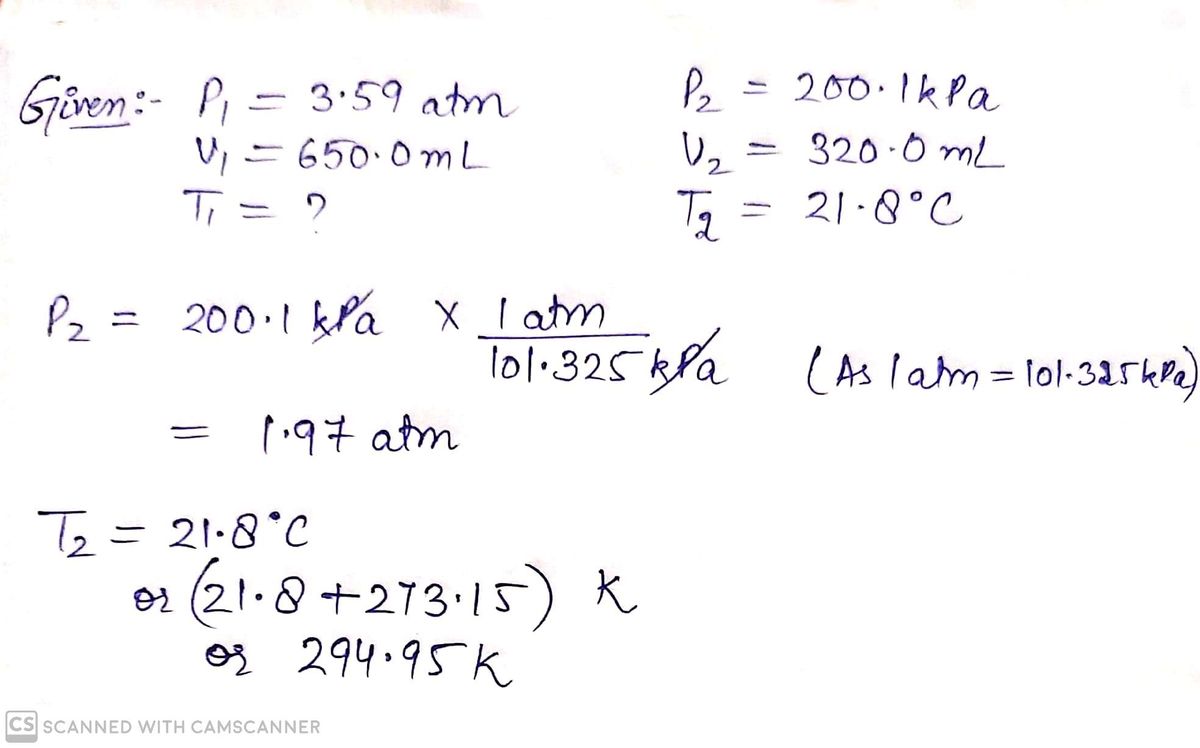 Given:- P₁ = 3.59 atm P₂ = 200.1kPa
V₁ = 650.0mL V₂ = 320.0 mL
T₁ = ? T₂ = 21.8°C
P₂ = 200.1 kPa x 1 atm / 101.325 kPa (As 1 atm = 101.325kPa)
= 1.97 atm
T₂ = 21.8°C
or (21.8+273.15) K
or 294.95K
CS SCANNED WITH CAMSCANNER